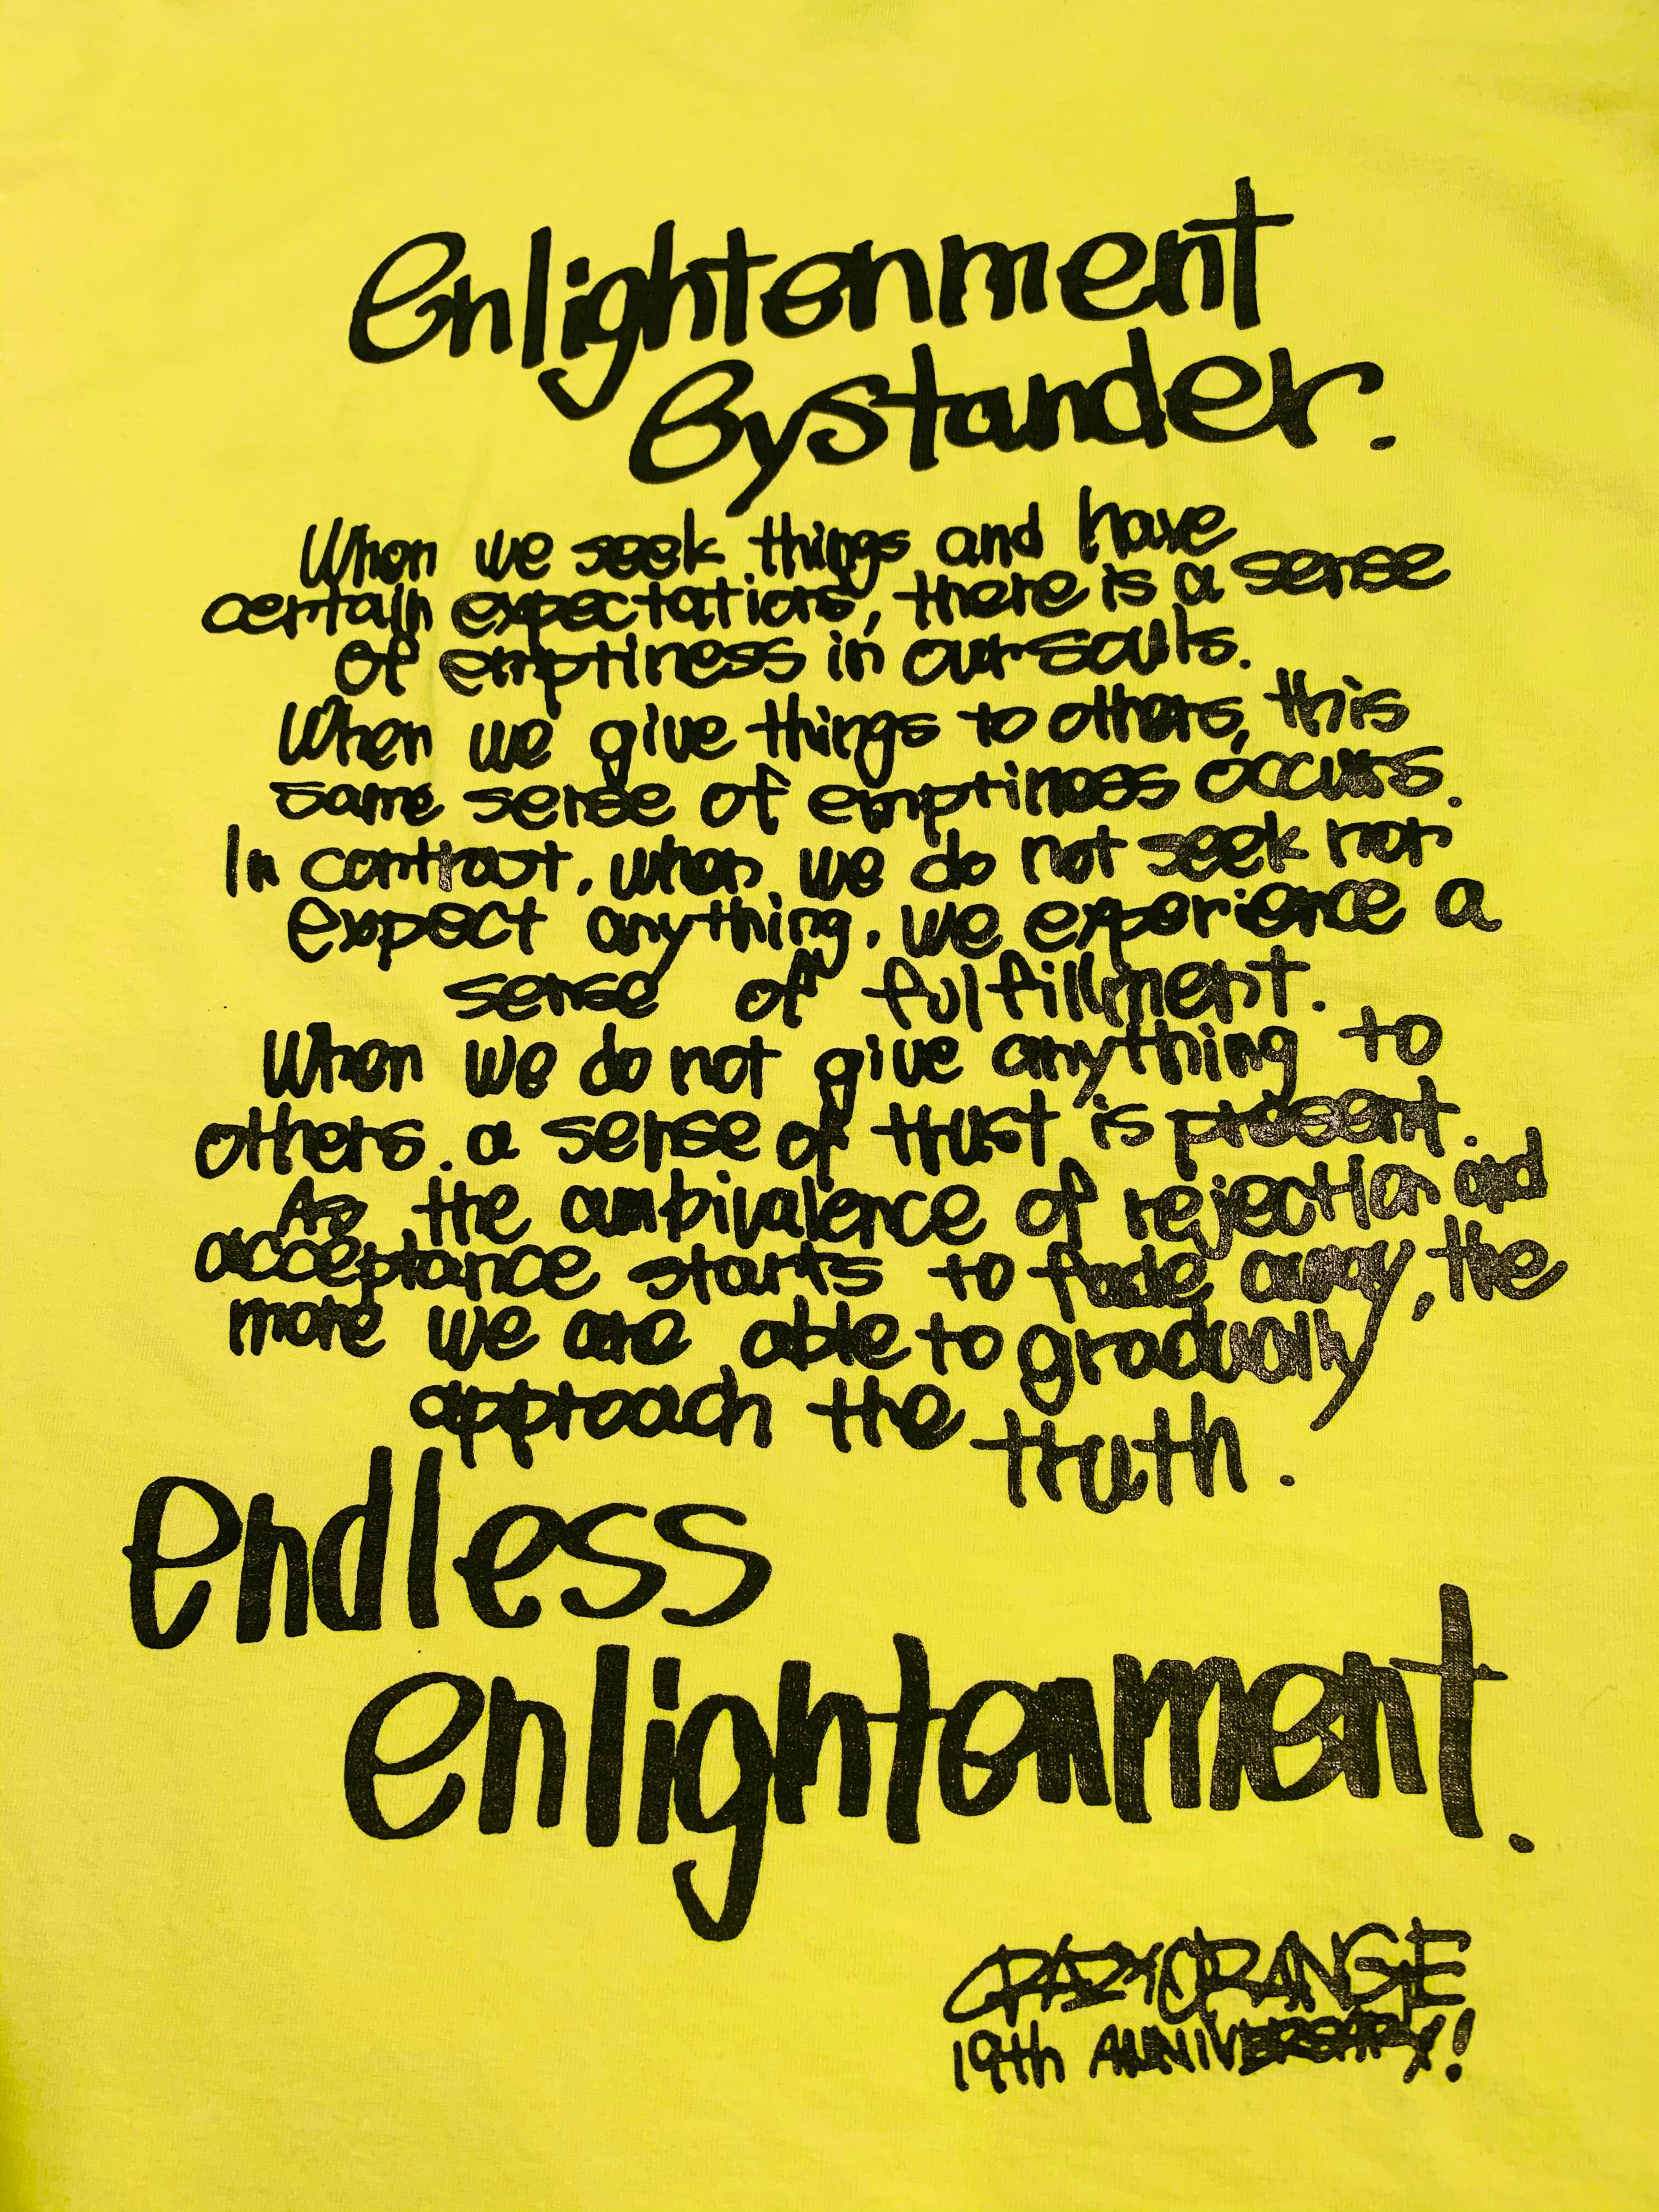 enlightenment
Bystander.
When we seek things and have
certain expectations, there is a sense
of emptiness in our souls.
When we give things to others, this
same sense of emptiness occurs.
In contrast, when we do not seek nor
expect anything, we experience a
sense of fulfillment.
When we do not give anything to
others, a sense of trust is present.
As the ambivalence of rejection and
acceptance starts to fade away, the
more we are able to gradually
approach the truth.
endless
enlightenment.
CRAZY ORANGE
19th ANNIVERSARY!